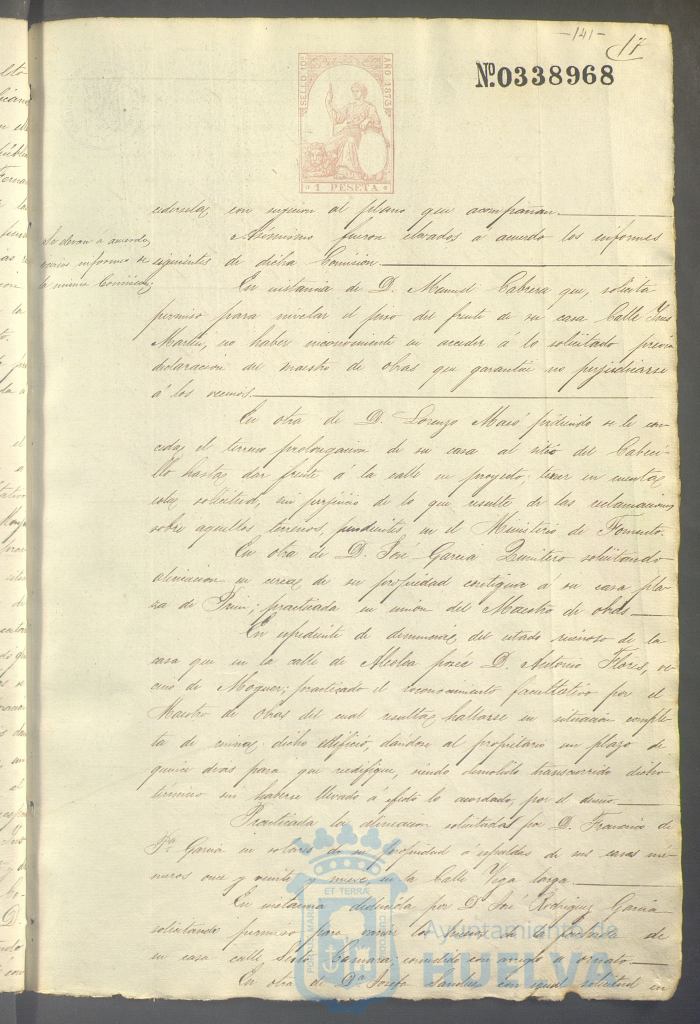 -141-
17
SELLO 10º
AÑO 1873
1 PESETA
Nº 0338968
cederselas con sugecion al plano que acompañan.
Asimismo fueron elevados á acuerdo los informes
Se elevan a acuerdo
varios informes de
la misma Comision;
siguientes de dicha Comision.
En instancia de D. Manuel Cabrera que, solicita
permiso para nivelar el piso del frente de su casa Calle
Martin, no haber inconveniente en acceder á lo solicitado previa
declaracion del maestro de obras que garantice no perjudicarse
á los vecinos.
En otra de D. Lorenzo Macó pidiendo se le con-
ceda el terreno prolongacion de su casa al sitio del Cabeci-
llo hasta dar frente á la calle en proyecto; tener en cuenta
esta solicitud, sin perjuicio de lo que resulte de las reclamaciones
sobre aquellos terrenos, pendientes en el Ministerio de Fomento.
En otra de D. José Garcia Quintero solicitando
alineacion en cercas de su propiedad contigua á su casa pla-
za de Prim; practicada en union del Maestro de obras
En espediente de denuncia del estado ruinoso de la
casa que en la calle de Alcolea poseé D. Antonio Flores, ve-
cino de Moguer; practicado el reconocimiento facultativo por el
Maestro de obras del cual resulta hallarse en situacion comple-
ta de ruina dicho edificio, dándose al propietario un plazo de
quince dias para que reedifique, siendo demolido transcurrido dicho
termino sin haberse llevado á efecto lo acordado, por el dueño.
Practicada la alineacion solicitada por D. Francisco de
Pª Garcia en solares de su propiedad á espaldas de sus casas nú-
meros once y veinte y nueve, en la Calle Vega larga.
En instancia dedicida por D. José Rodriguez Garcia
solicitando permiso para variar los huecos de la fachada de
su casa calle Sexto Cámara; concedido con arreglo a ornato.
En otra de Dª Josefa Sanchez con igual solicitud en
PORTUS MARIS ET TERRAE CUSTODIA
Ayuntamiento de
HUELVA